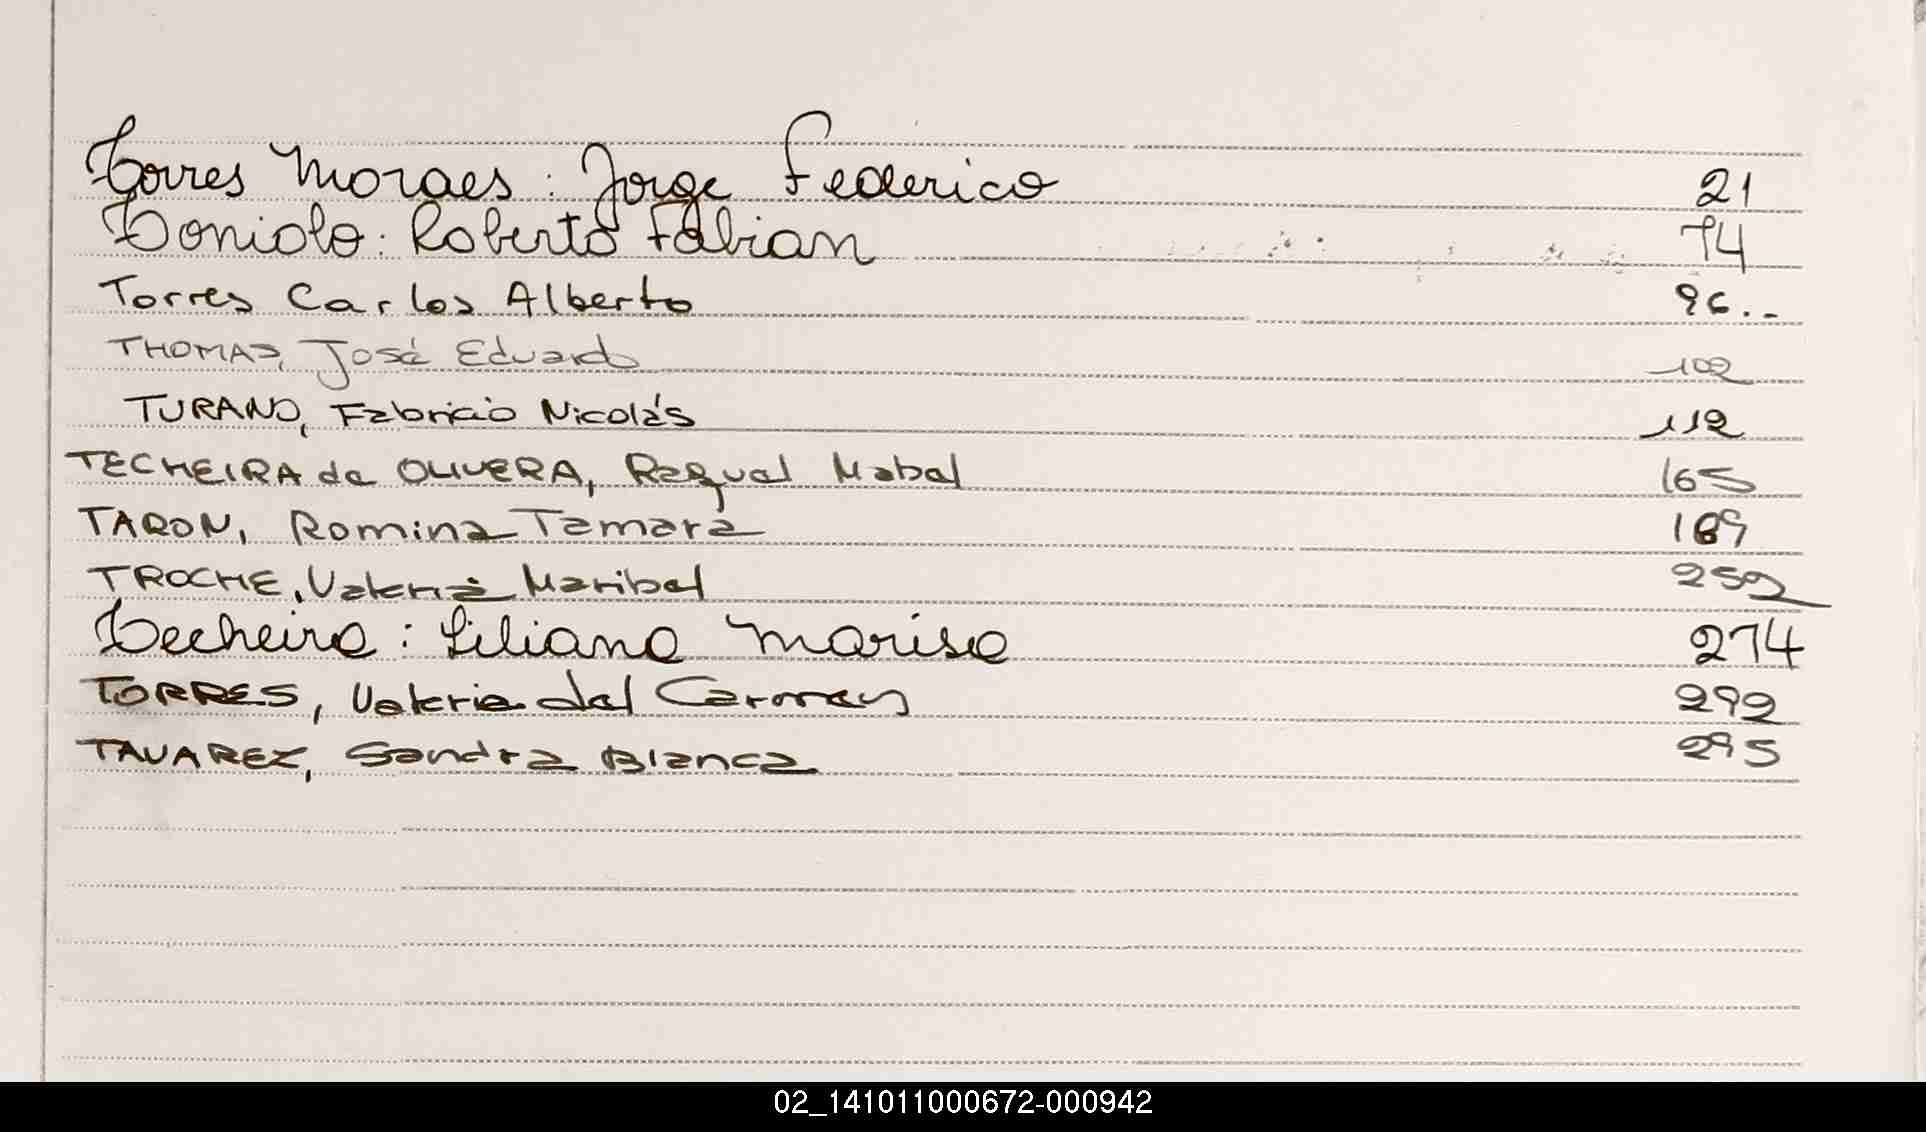 Torres Moraes: Jorge Federico 21
Toniolo: Roberto Fabian 74
Torres Carlos Alberto 96..-
THOMAS, José Eduardo 102
TURANO, Fabricio Nicolás 112
TECHEIRA de OLIVERA, Raquel Mabel 165
TARON, Romina Tamara 189
TROCHE, Valeria Maribel 252
Techeira: Liliana Marisa 274
TORRES, Valeria del Carmen 292
TAVAREZ, Sandra Blanca 295
02_141011000672-000942